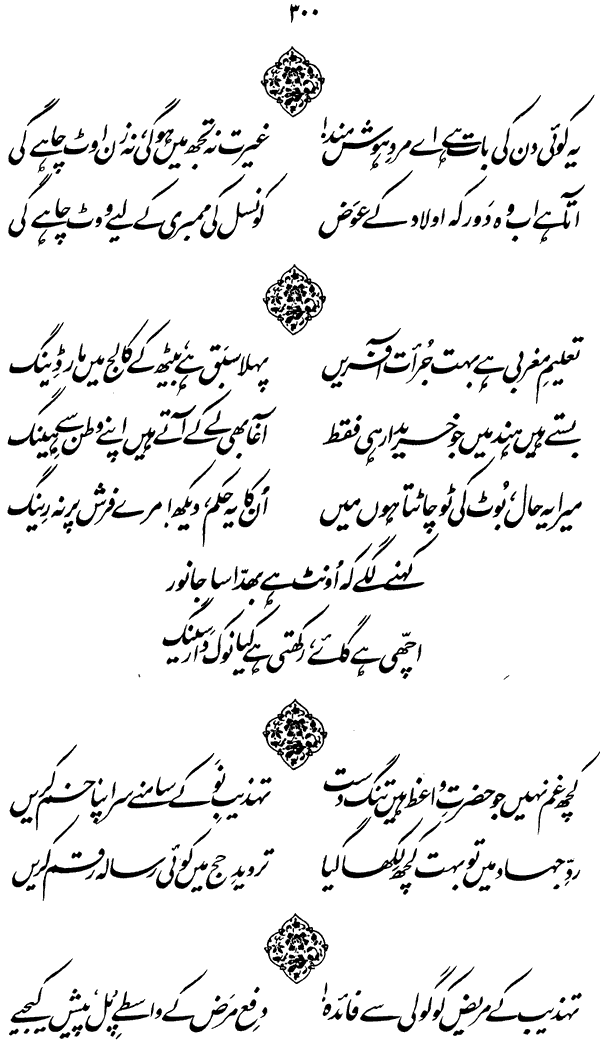 ۳۰۰
یہ کوئی دن کی بات ہے اے مردِ ہوش مند! غیرت نہ تجھ میں ہوگی، نہ زن اوٹ چاہے گی
آتا ہے اب وہ دَور کہ اولاد کے عوَض کونسل کی ممبری کے لیے ووٹ چاہے گی
تعلیمِ مغربی ہے بہت جُرأت آفریں پہلا سبَق ہے، بیٹھ کے کالج میں مار ڈِینگ
بستے ہیں ہند میں جو خریدار ہی فقط آغا بھی لے کے آتے ہیں اپنے وطن سے ہِینگ
میرا یہ حال، بُوٹ کی ٹو چاٹتا ہوں میں اُن کا یہ حکم، دیکھ! مرے فرش پر نہ رِینگ
کہنے لگے کہ اُونٹ ہے بھدّا سا جانور
اچھّی ہے گائے، رکھتی ہے کیا نوک دار سِینگ
کچھ غم نہیں جو حضرتِ واعظ ہیں تنگ دست تہذیبِ نَو کے سامنے سر اپنا خم کریں
ردِّ جہاد میں تو بہت کچھ لِکھا گیا تردیدِ حج میں کوئی رسالہ رقم کریں
تہذیب کے مریض کو گولی سے فائدہ! دفعِ مرَض کے واسطے پِل پیش کیجیے